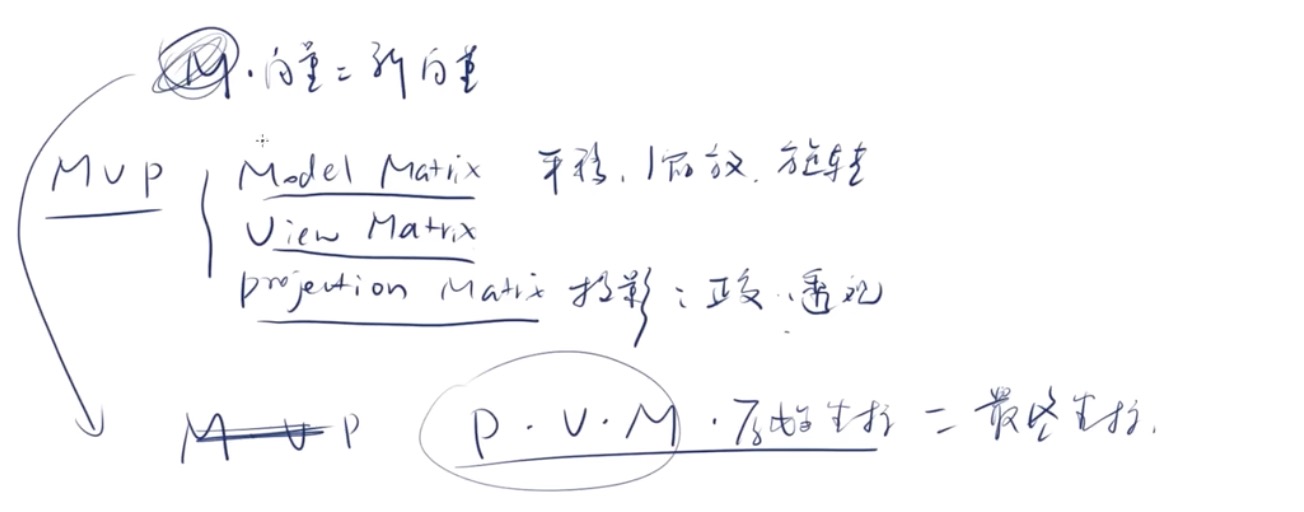 M · 向量 = 新向量
MVP { Model Matrix 平移、缩放、旋转
View Matrix
projection Matrix 投影:正交、透视
MVP P · V · M · 原始坐标 = 最终坐标.